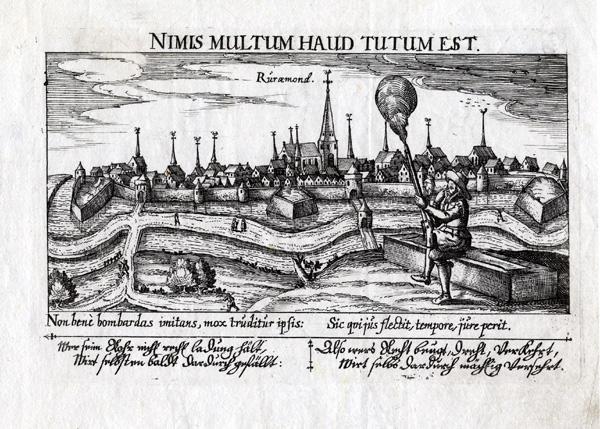 NIMIS MULTUM HAUD TUTUM EST.
Rúræmond.
Non benè bombardas imitans, mox truditur ipsis:
Sic qui jus flectit, tempore, jure perit.
Wer sein Rohr nicht recht ladung hält,
Wirt selbsten baldt dardurch gefällt:
Also wers Recht beugt, dreht, Verkehrt,
Wirt selbs dardurch mächtig Versehrt.